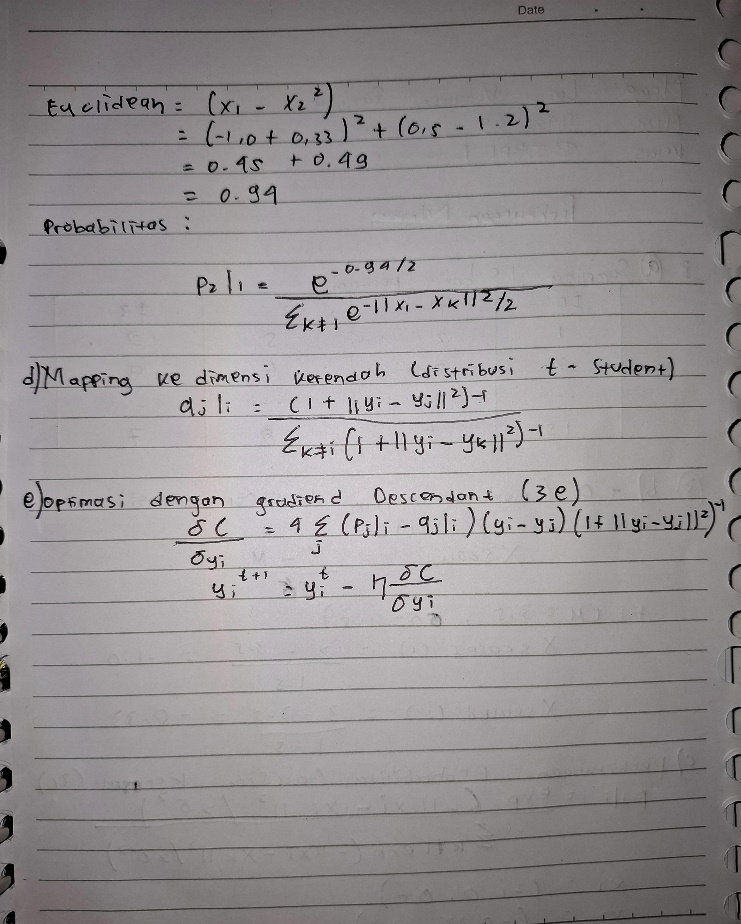 Date
Euclidean = (x₁ - x₂²)
= (-1,0 + 0,33)² + (0,5 - 1.2)²
= 0.45 + 0.49
= 0.94
Probabilitas :
P₂|₁ = e^-0.94/2
Σk≠1 e^-||x₁ - xk||²/2
d) Mapping ke dimensi kerendah (distribusi t - Student)
qj|i = (1 + ||yi - yj||²)-1
Σk≠i (1 + ||yi - yk||²)-1
e) optimasi dengan gradiend Descendant (3e)
δC = 4 Σ (Pj|i - qj|i) (yi - yj) (1 + ||yi - yj||²)-1
δyi j
yi^t+1 = yi^t - η δC
δyi